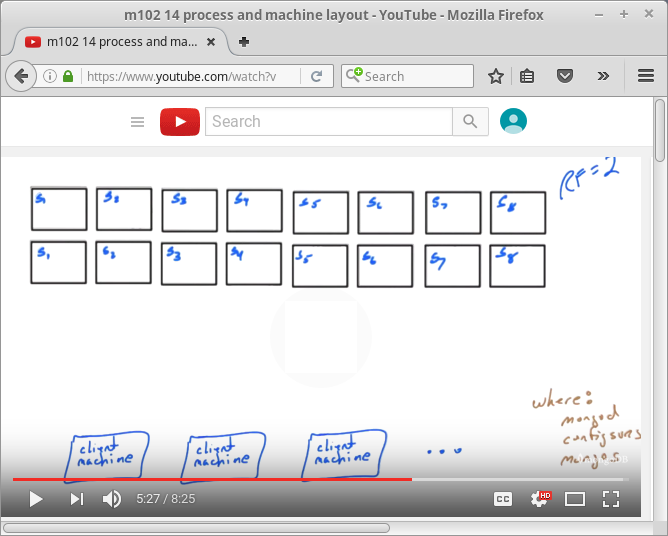 m102 14 process and machine layout - YouTube - Mozilla Firefox
m102 14 process and ma...
https://www.youtube.com/watch?v
Search
Search
RF=2
S1 S2 S3 S4 S5 S6 S7 S8
S1 S2 S3 S4 S5 S6 S7 S8
where:
mongod
config svrs
mongos
client machine
client machine
client machine
...
5:27 / 8:25
CC
HD